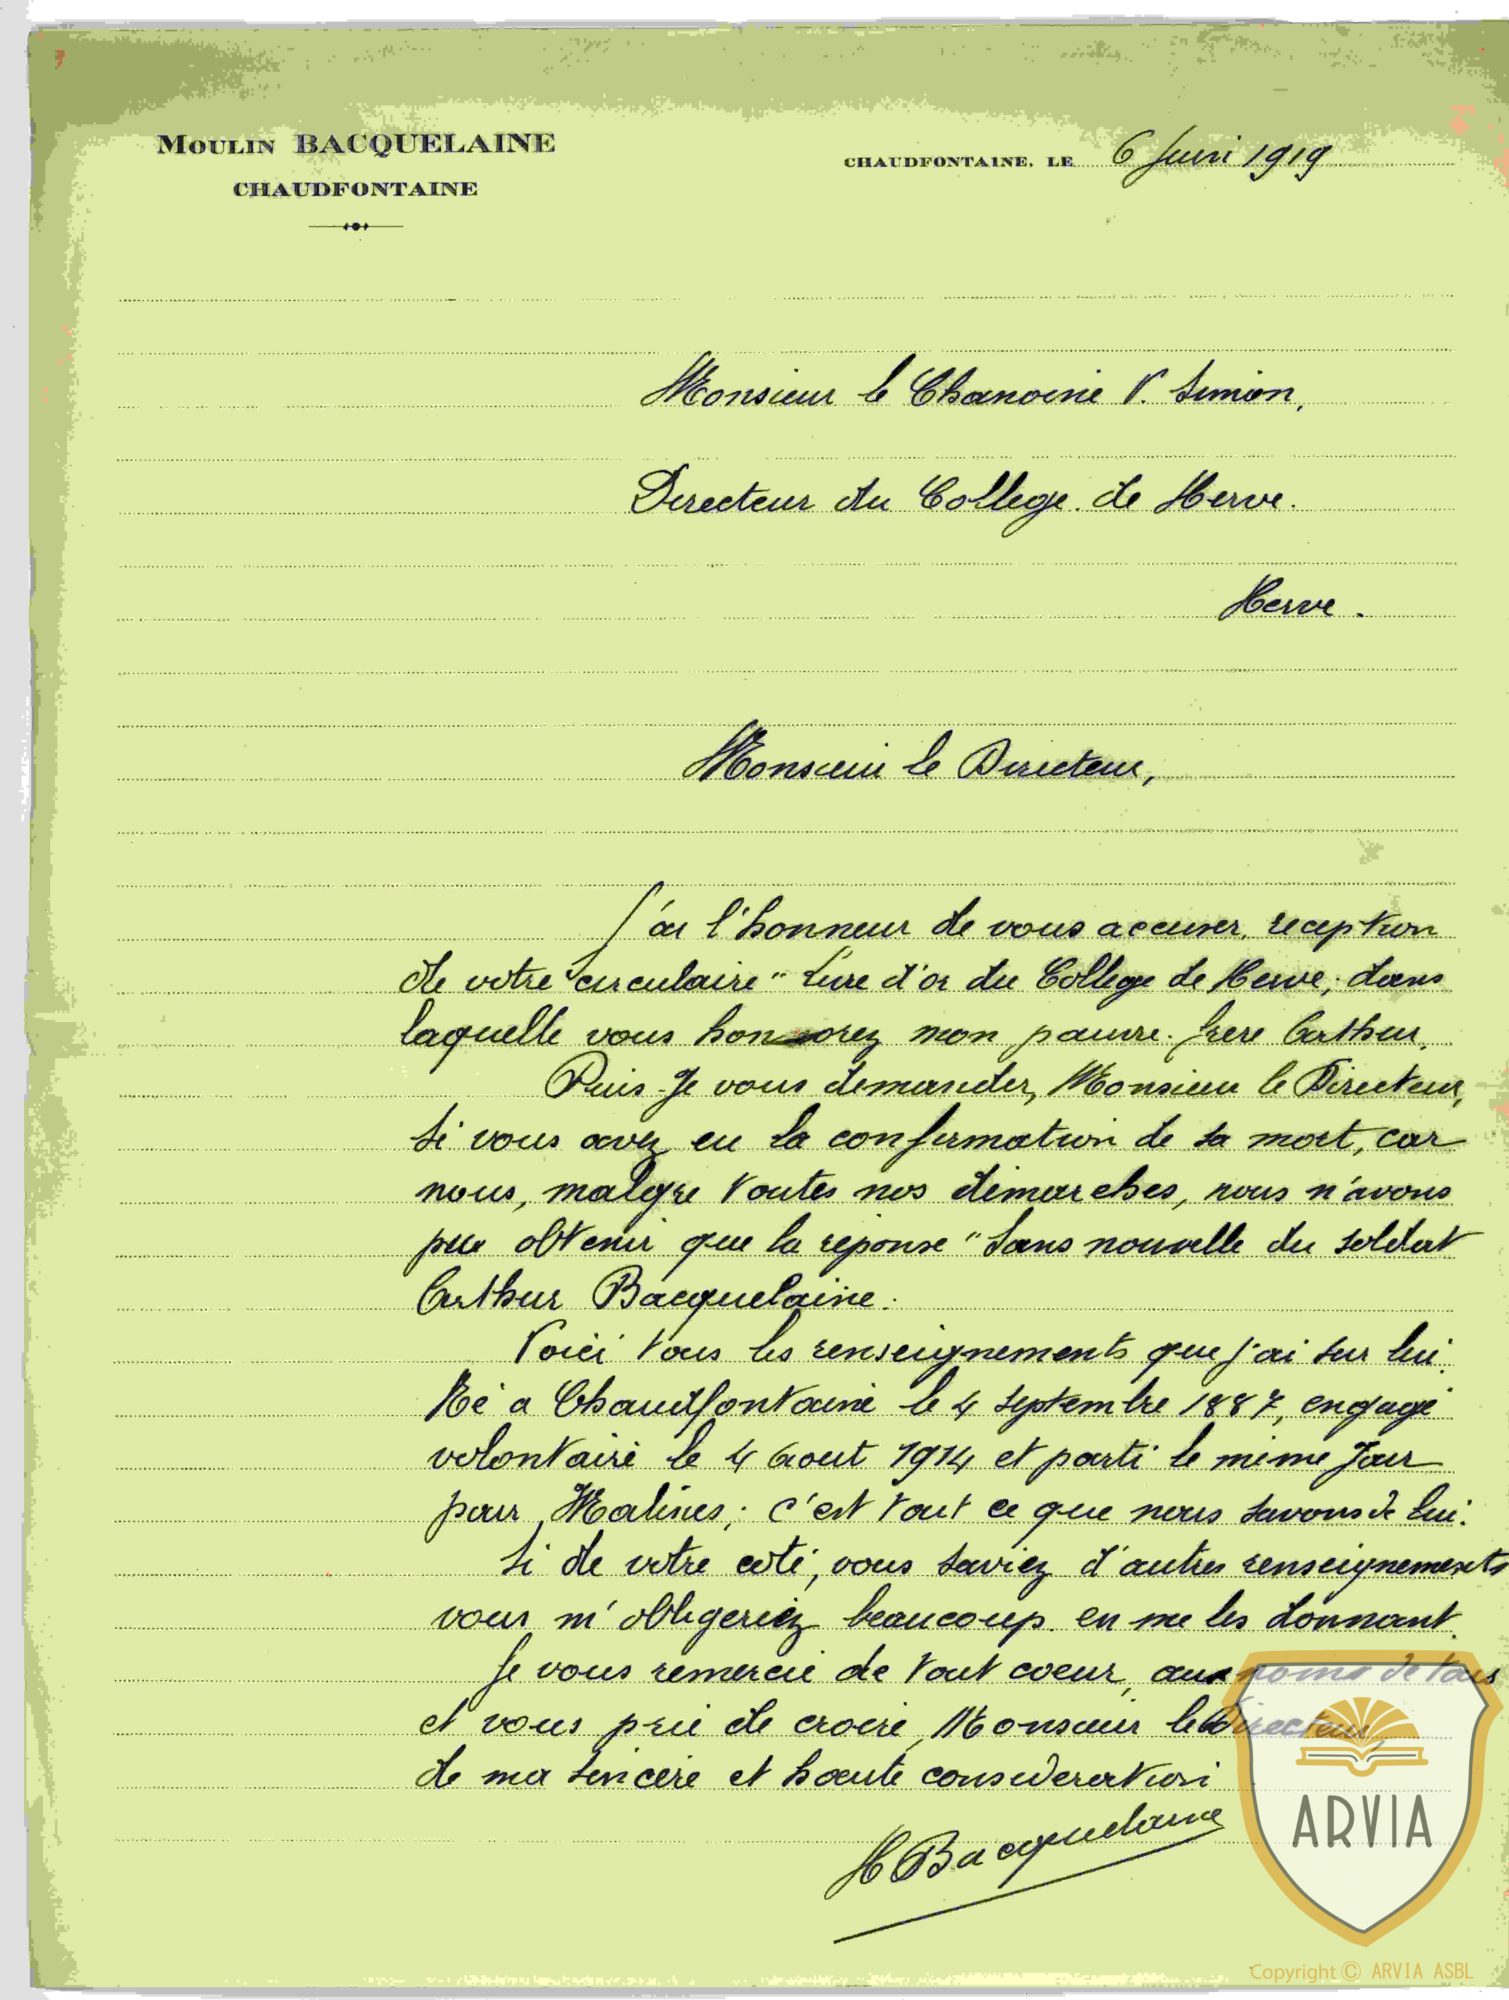 MOULIN BACQUELAINE
CHAUDFONTAINE
CHAUDFONTAINE, LE 6 Juin 1919
Monsieur le Chanoine V. Simon,
Directeur du College de Herve.
Herve.
Monsieur le Directeur,
J'ai l'honneur de vous accuser reception
de votre circulaire "Livre d'or du College de Herve, dans
laquelle vous honnorez mon pauvre frère Arthur.
Puis-Je vous demander, Monsieur le Directeur,
si vous avez eu la confirmation de sa mort, car
nous, malgré toutes nos démarches, nous n'avons
pu obtenir que la réponse "Sans nouvelle du soldat
Arthur Bacquelaine.
Voici tous les renseignements que j'ai sur lui.
Né a Chaudfontaine le 4 septembre 1887, engagé
volontaire le 4 Aout 1914 et parti le même Jour
pour Malines; c'est tout ce que nous savons de lui.
Si de votre coté, vous saviez d'autres renseignements
vous m'obligeriez beaucoup en me les donnant.
Je vous remercie de tout coeur, au noms de tous
et vous prie de croire, Monsieur le Directeur,
de ma sincère et haute consideration
H Bacquelaine
ARVIA
Copyright © ARVIA ASBL